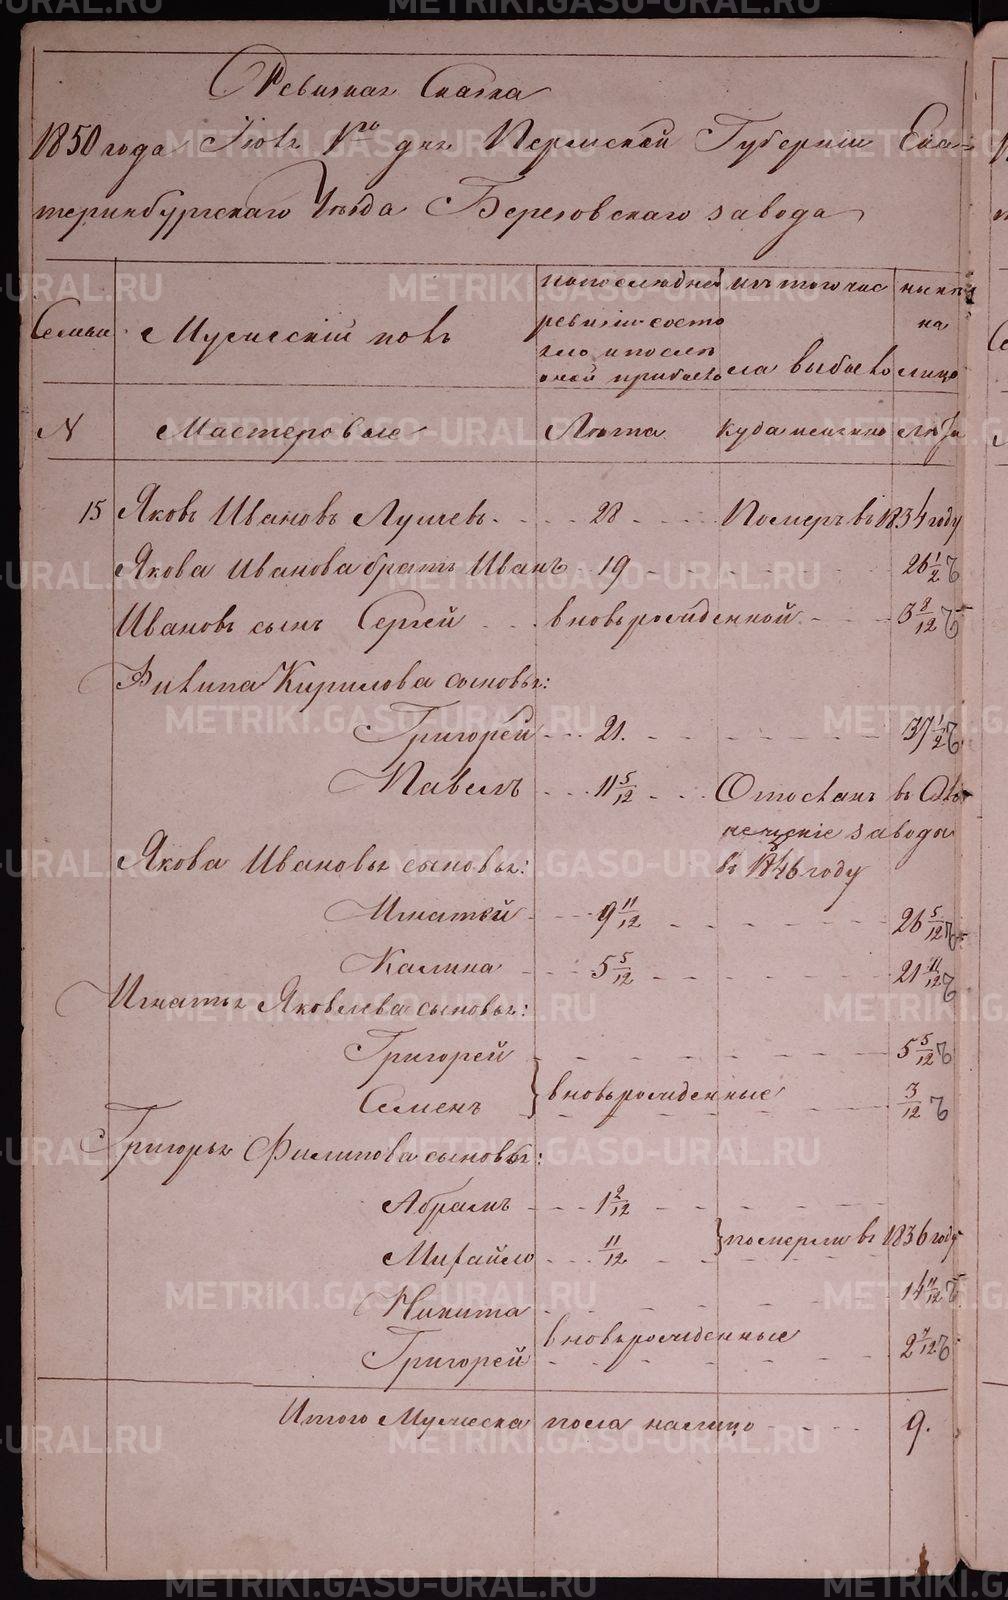 Ревизская Сказка
1850 года Iюня 1го дня Пермской Губернiи Ека-
теринбургскаго Уѣзда Березовскаго завода
Семьи
Мужескiй полъ
по последней ревизiи состо яло и после оной прибыло
изъ того числа выбыло
нынѣ на лицо
N
Мастеровые
Лѣта
куда именно
лѣта
15 Яковъ Ивановъ Лушевъ 28 Померъ въ 1834 году
Якова Иванова братъ Иванъ 19 26 1/2
Ивановъ сынъ Сергей вновьрожденной 3 8/12
Филипа Кирилова сыновья:
Григорей 21. 37 1/2
Павелъ 11 5/12 Отосланъ въ
заводы
Якова Иванова сыновья: въ 1846 году
Игнатей 9 11/12 26 5/12
Калина 5 5/12 21 11/12
Игнатья Яковлева сыновья:
Григорей 5 5/12
Семенъ } вновьрожденные 3/12
Григорья Филипова сыновья:
Абрамъ 1 2/12
Михайло 11/12 } померли въ 1836 году
Никита 14 11/12
Григорей вновьрожденные 2 7/12
Итого Мужеска пола налицо 9.
METRIKI.GASO-URAL.RU